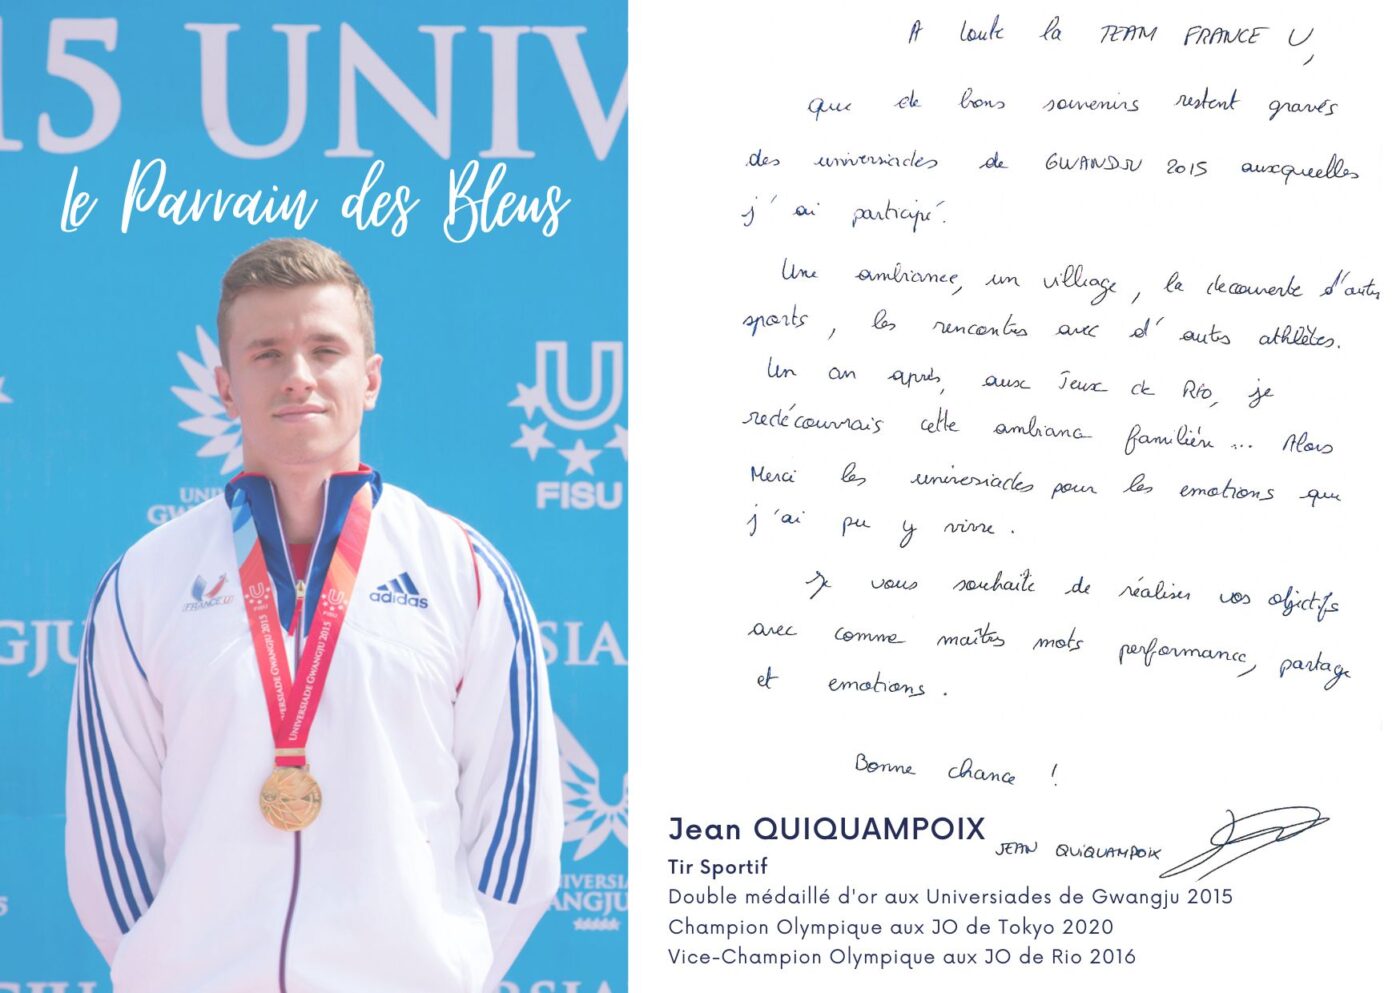 15 UNIV
le Parrain des Bleus
U
FISU
UNI
GW
adidas
FRANCE U
U
FISU
U
FISU
UNIVERSIADE GWANGJU 2015
UNIVERSIADE GWANGJU 2015
GJU
SIA
NIVERSI
ANGJU
5
Universi
A toute la TEAM FRANCE U,
que de bons souvenirs restent gravés
des universiades de GWANDJU 2015 auxquelles
j'ai participé.
Une ambiance, un village, la decouverte d'autres
sports, les rencontres avec d'autres athlètes.
Un an après, aux Jeux de RIO, je
redécouvrais cette ambiance familière... Alors
Merci les universiades pour les emotions que
j'ai pu y vivre.
Je vous souhaite de réaliser vos objectifs
avec comme maîtres mots performance, partage
et emotions.
Bonne chance !
Jean QUIQUAMPOIX
JEAN QUIQUAMPOIX
Tir Sportif
Double médaillé d'or aux Universiades de Gwangju 2015
Champion Olympique aux JO de Tokyo 2020
Vice-Champion Olympique aux JO de Rio 2016